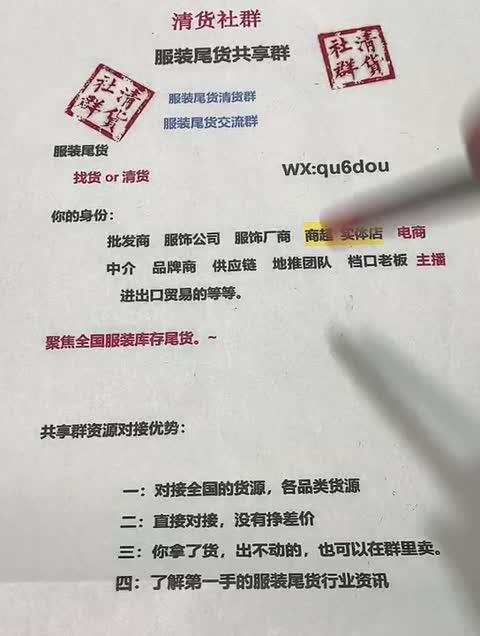 清货社群
服装尾货共享群
清货社群
清货社群
服装尾货清货群
服装尾货交流群
服装尾货
找货 or 清货
WX:qu6dou
你的身份:
批发商 服饰公司 服饰厂商 商超 实体店 电商
中介 品牌商 供应链 地推团队 档口老板 主播
进出口贸易的等等。
聚焦全国服装库存尾货。~
共享群资源对接优势:
一: 对接全国的货源, 各品类货源
二: 直接对接, 没有挣差价
三: 你拿了货, 出不动的, 也可以在群里卖。
四: 了解第一手的服装尾货行业资讯